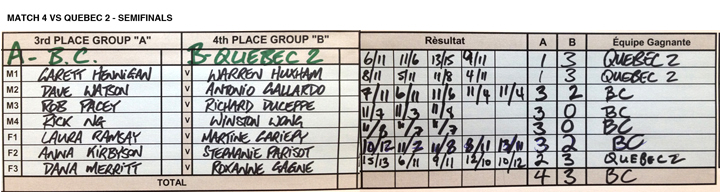 MATCH 4 VS QUEBEC 2 - SEMIFINALS
3rd PLACE GROUP "A" 4th PLACE GROUP "B" Rèsultat A B Équipe Gagnante
A- B.C. B-QUEBEC 2 6/11 11/6 13/15 9/11 1 3 QUEBEC 2
M1 GARETT HENNIGAN V WARREN HUXHAM 8/11 5/11 11/8 4/11 1 3 QUEBEC 2
M2 DAVE WATSON V ANTONIO GALLARDO 7/11 6/11 11/6 11/4 11/4 3 2 BC
M3 ROB PACEY V RICHARD DUCEPPE 11/7 11/3 11/8 3 0 BC
M4 RICK NG V WINSTON WONG 11/8 11/7 11/7 3 0 BC
F1 LAURA RAMSAY V MARTINE CARIEPY 10/12 11/2 11/8 8/11 13/11 3 2 BC
F2 ANNA KIRBYSON V STEPHANIE PARISOT 15/13 6/11 9/11 12/10 10/12 2 3 QUEBEC 2
F3 DANA MERRITT V ROXANNE GAGNE
TOTAL 4 3 BC